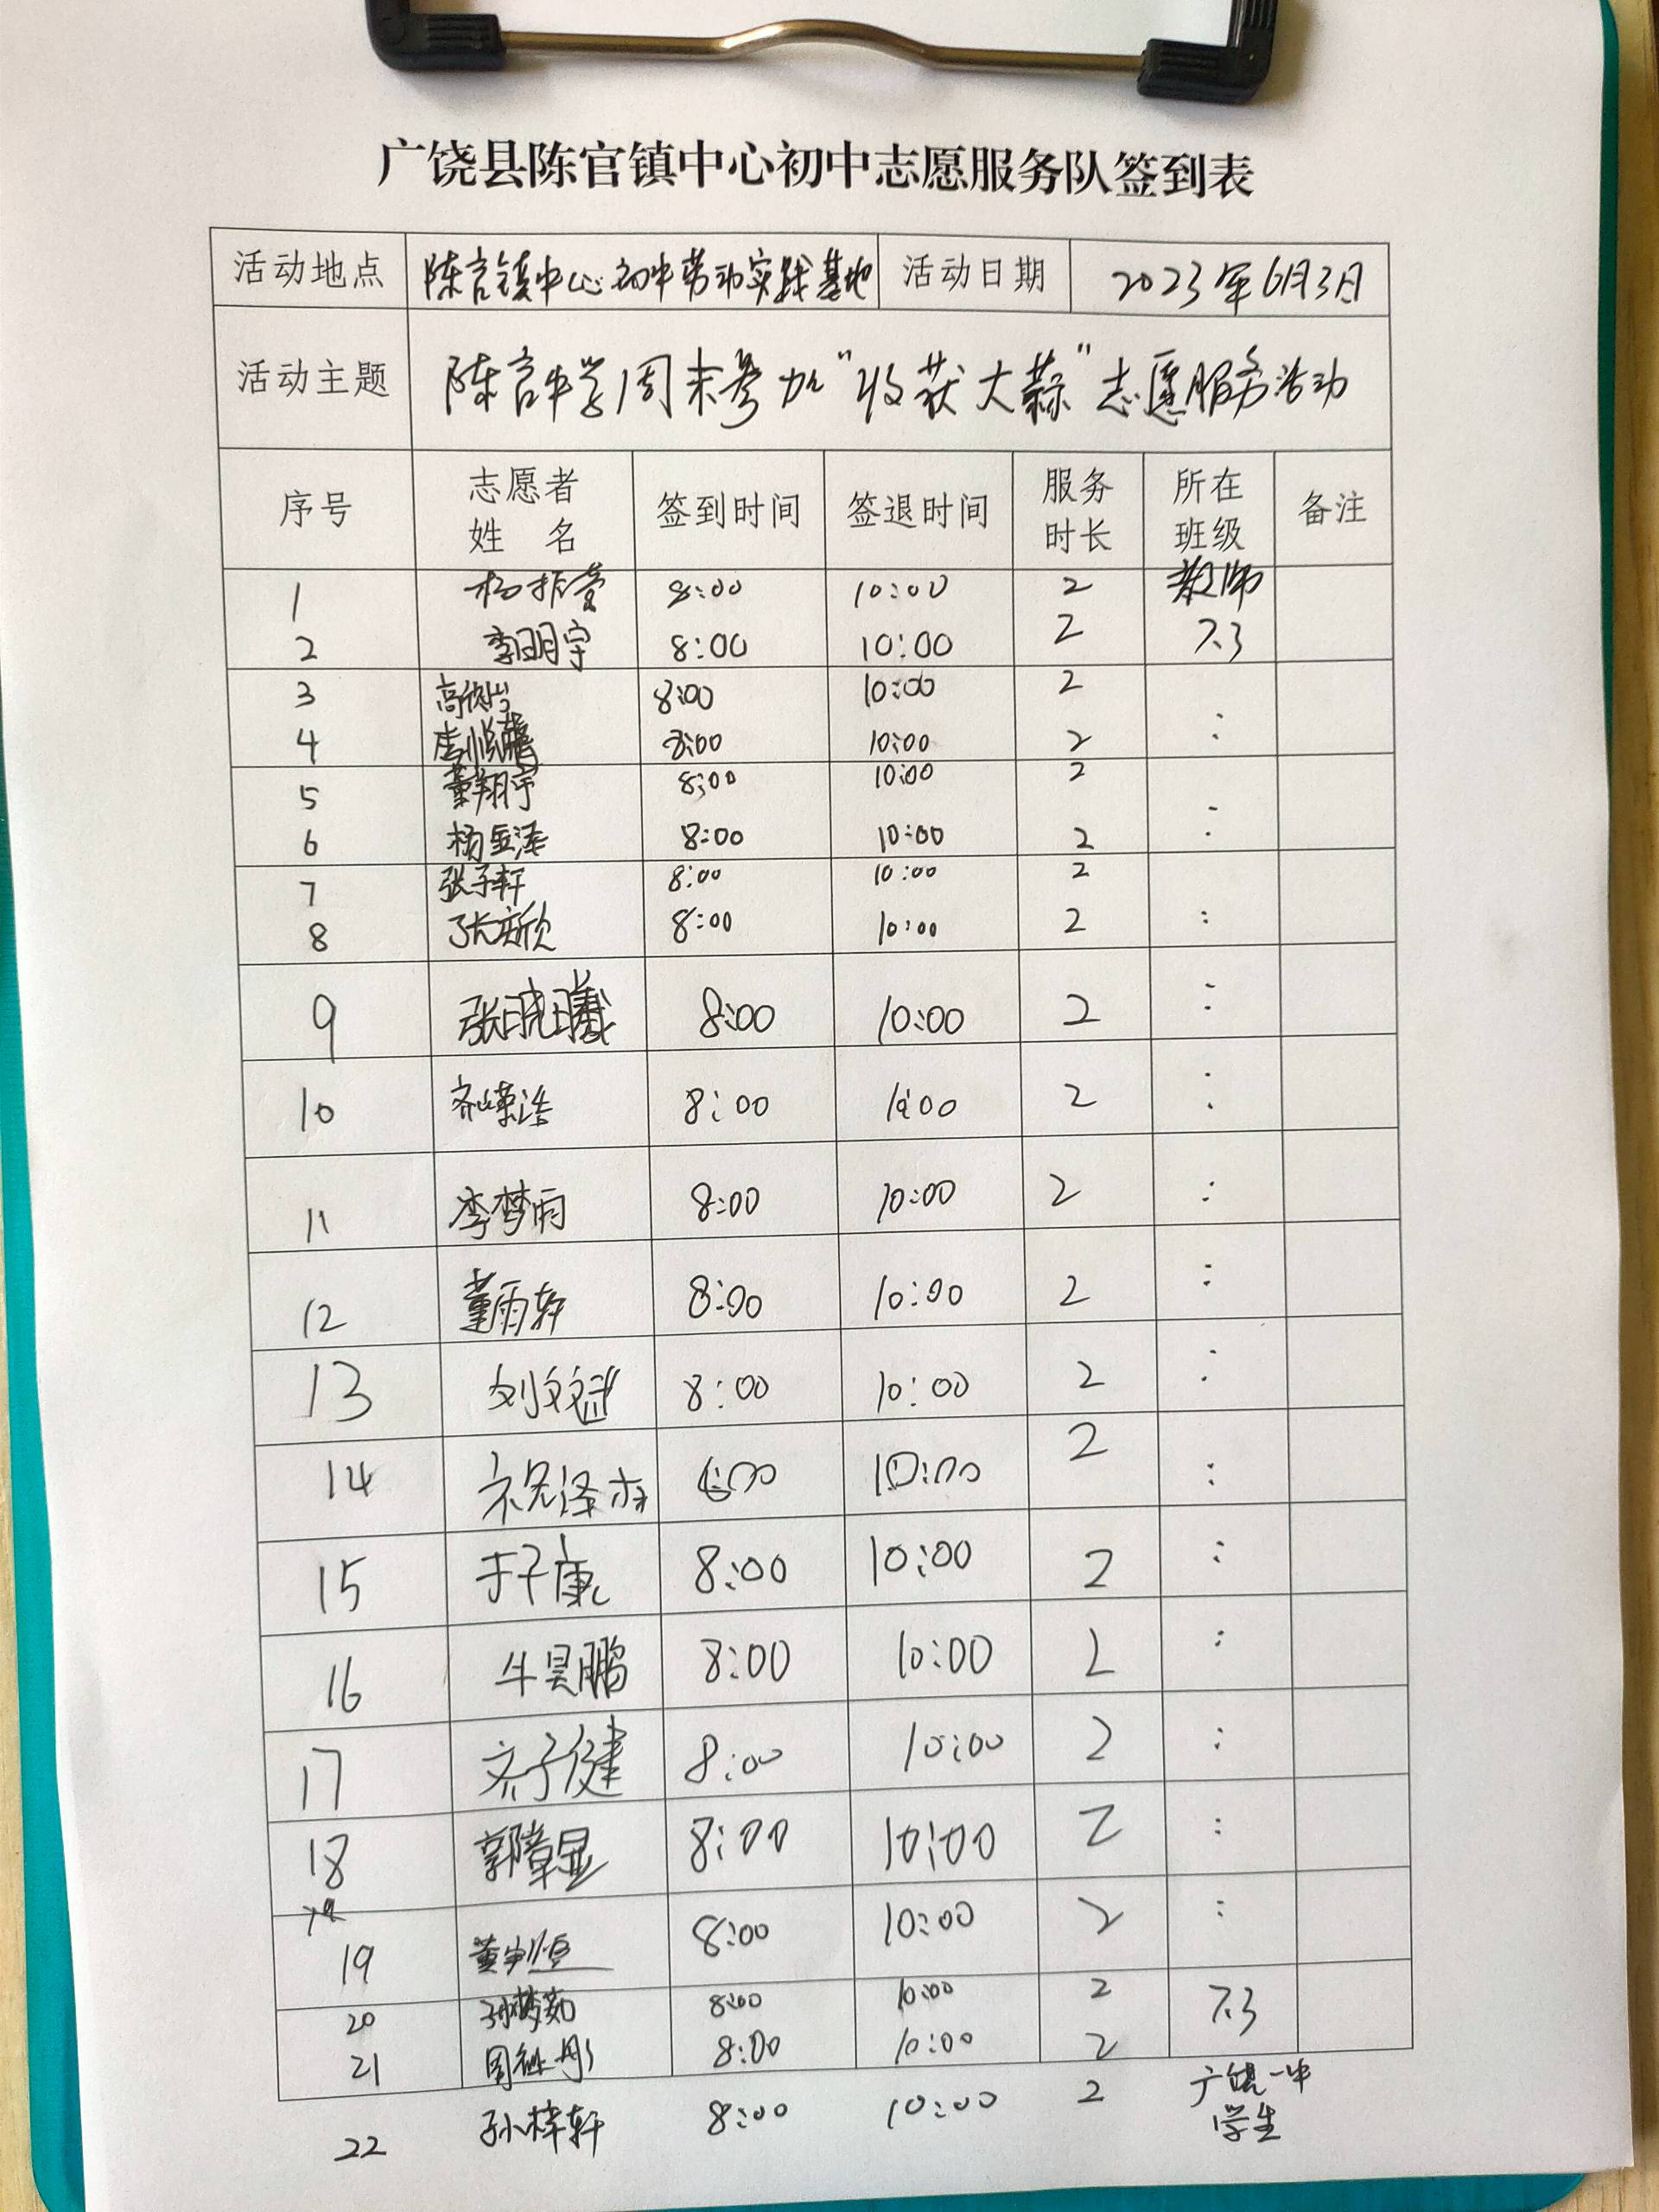 广饶县陈官镇中心初中志愿服务队签到表
活动地点 陈官镇中心初中劳动实践基地 活动日期 2023年6月3日
活动主题 陈官中学周末参加“收获大蒜”志愿服务活动
序号 志愿者姓名 签到时间 签退时间 服务时长 所在班级 备注
1 杨振莹 8:00 10:00 2 教师
2 李明宇 8:00 10:00 2 7.3
3 8:00 10:00 2
4 8:00 10:00 2 :
5 董翔宇 8:00 10:00 2
6 杨金泽 8:00 10:00 2 :
7 张子轩 8:00 10:00 2
8 张奕欣 8:00 10:00 2 :
9 张晓曦 8:00 10:00 2 :
10 齐荣浩 8:00 10:00 2 :
11 李梦雨 8:00 10:00 2 :
12 董雨轩 8:00 10:00 2 :
13 刘文斌 8:00 10:00 2 :
14 10:00 2 :
15 于子康 8:00 10:00 2 :
16 牛昊鹏 8:00 10:00 2 :
17 齐子健 8:00 10:00 2 :
18 郭章显 8:00 10:00 2 :
19 8:00 10:00 2 :
20 孙梦茹 8:00 10:00 2 7.3
21 8:00 10:00 2
22 孙梓轩 8:00 10:00 2 广饶一中学生